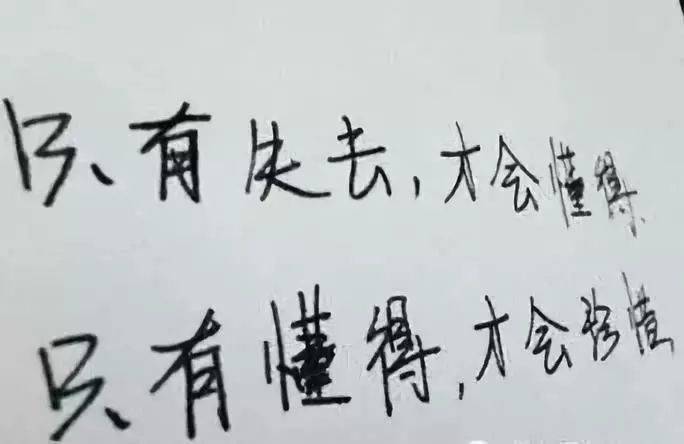 只有失去,才会懂得
只有懂得,才会珍惜